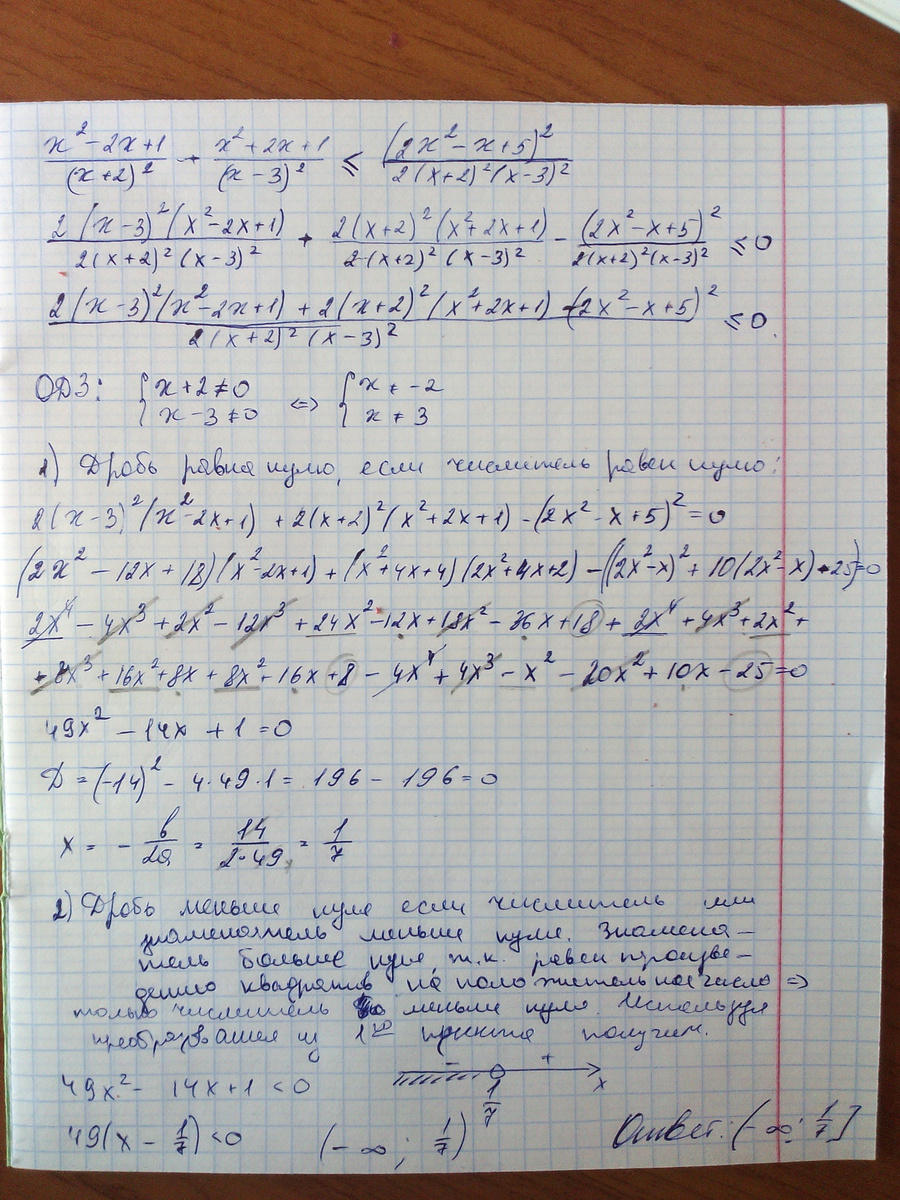 x² - 2x + 1 / (x+2)² + x² + 2x + 1 / (x-3)² ≤ (2x² - x + 5)² / 2(x+2)²(x-3)²
2(x-3)²(x² - 2x + 1) / 2(x+2)²(x-3)² + 2(x+2)²(x² + 2x + 1) / 2(x+2)²(x-3)² - (2x² - x + 5)² / 2(x+2)²(x-3)² ≤ 0
2(x-3)²(x² - 2x + 1) + 2(x+2)²(x² + 2x + 1) - (2x² - x + 5)² / 2(x+2)²(x-3)² ≤ 0
ОДЗ: { x + 2 ≠ 0 <=> { x ≠ -2
x - 3 ≠ 0 x ≠ 3
1) Дробь равна нулю, если числитель равен нулю:
2(x-3)²(x² - 2x + 1) + 2(x+2)²(x² + 2x + 1) - (2x² - x + 5)² = 0
(2x² - 12x + 18)(x² - 2x + 1) + (x² + 4x + 4)(2x² + 4x + 2) - ((2x² - x)² + 10(2x² - x) + 25) = 0
2x⁴ - 4x³ + 2x² - 12x³ + 24x² - 12x + 18x² - 36x + 18 + 2x⁴ + 4x³ + 2x² +
+ 8x³ + 16x² + 8x + 8x² + 16x + 8 - 4x⁴ + 4x³ - x² - 20x² + 10x - 25 = 0
49x² - 14x + 1 = 0
D = (-14)² - 4·49·1 = 196 - 196 = 0
x = - b/2a = 14/2·49 = 1/7
2) Дробь меньше нуля если числитель или
знаменатель меньше нуля. Знамена-
тель больше нуля т.к. равен произве-
дению квадратов на положительное число =>
только числитель меньше нуля. Используя
преобразования из 1го пункта получим.
49x² - 14x + 1 < 0 - + x
1/7
49(x - 1/7) < 0 (-∞; 1/7) Ответ: (-∞; 1/7]